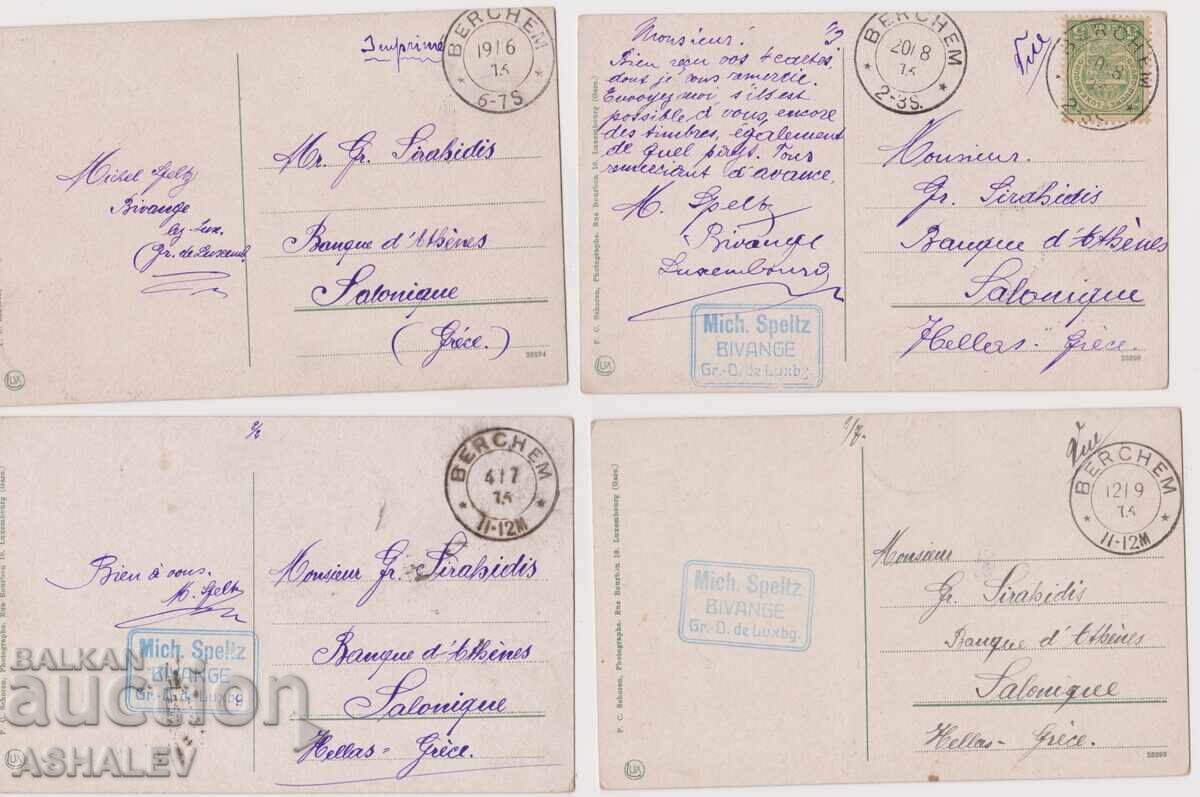 Imprimé
BERCHEM
19 | 6
13
6-7S
Mr. Gr. Sirahidis
Michel Speltz
Bivange
Banque d'Athènes
Salonique
(Grèce.)
Monsieur!
Bien reçu vos 4 cartes,
dont je vous remercie.
Envoyez-moi s'ils est
possible d' vous, encore
des timbres, également
de quel pays. Vous
remerciant d'avance,
M. Speltz
Bivange
Luxembourg
Mich. Speltz
BIVANGE
Gr.-D. de Luxbg.
BERCHEM
20 | 8
13
2-3S.
Vue
BERCHEM
2-3S.
Monsieur.
Gr. Sirahidis
Banque d'Athènes
Salonique
Hellas - Grèce.
P. C. Schoren, Photographe. Rue Bourbon 10. Luxembourg (Gare.)
BERCHEM
4 | 7
13
11-12M
Bien à vous.
M. Speltz
Mich. Speltz
BIVANGE
Gr.-D. de Luxbg
Monsieur Gr. Sirahidis
Banque d'Athènes
Salonique
Hellas - Grèce
P. C. Schoren, Photographe. Rue Bourbon 10. Luxembourg (Gare.)
BALKAN
auction
ASHALEV
Vue
BERCHEM
12 | 9
13
11-12M
Mich. Speltz
BIVANGE
Gr.-D. de Luxbg.
Monsieur
Gr. Sirahidis
Banque d'Athènes
Salonique
Hellas - Grèce.
P. C. Schoren, Photographe. Rue Bourbon 10. Luxembourg (Gare.)